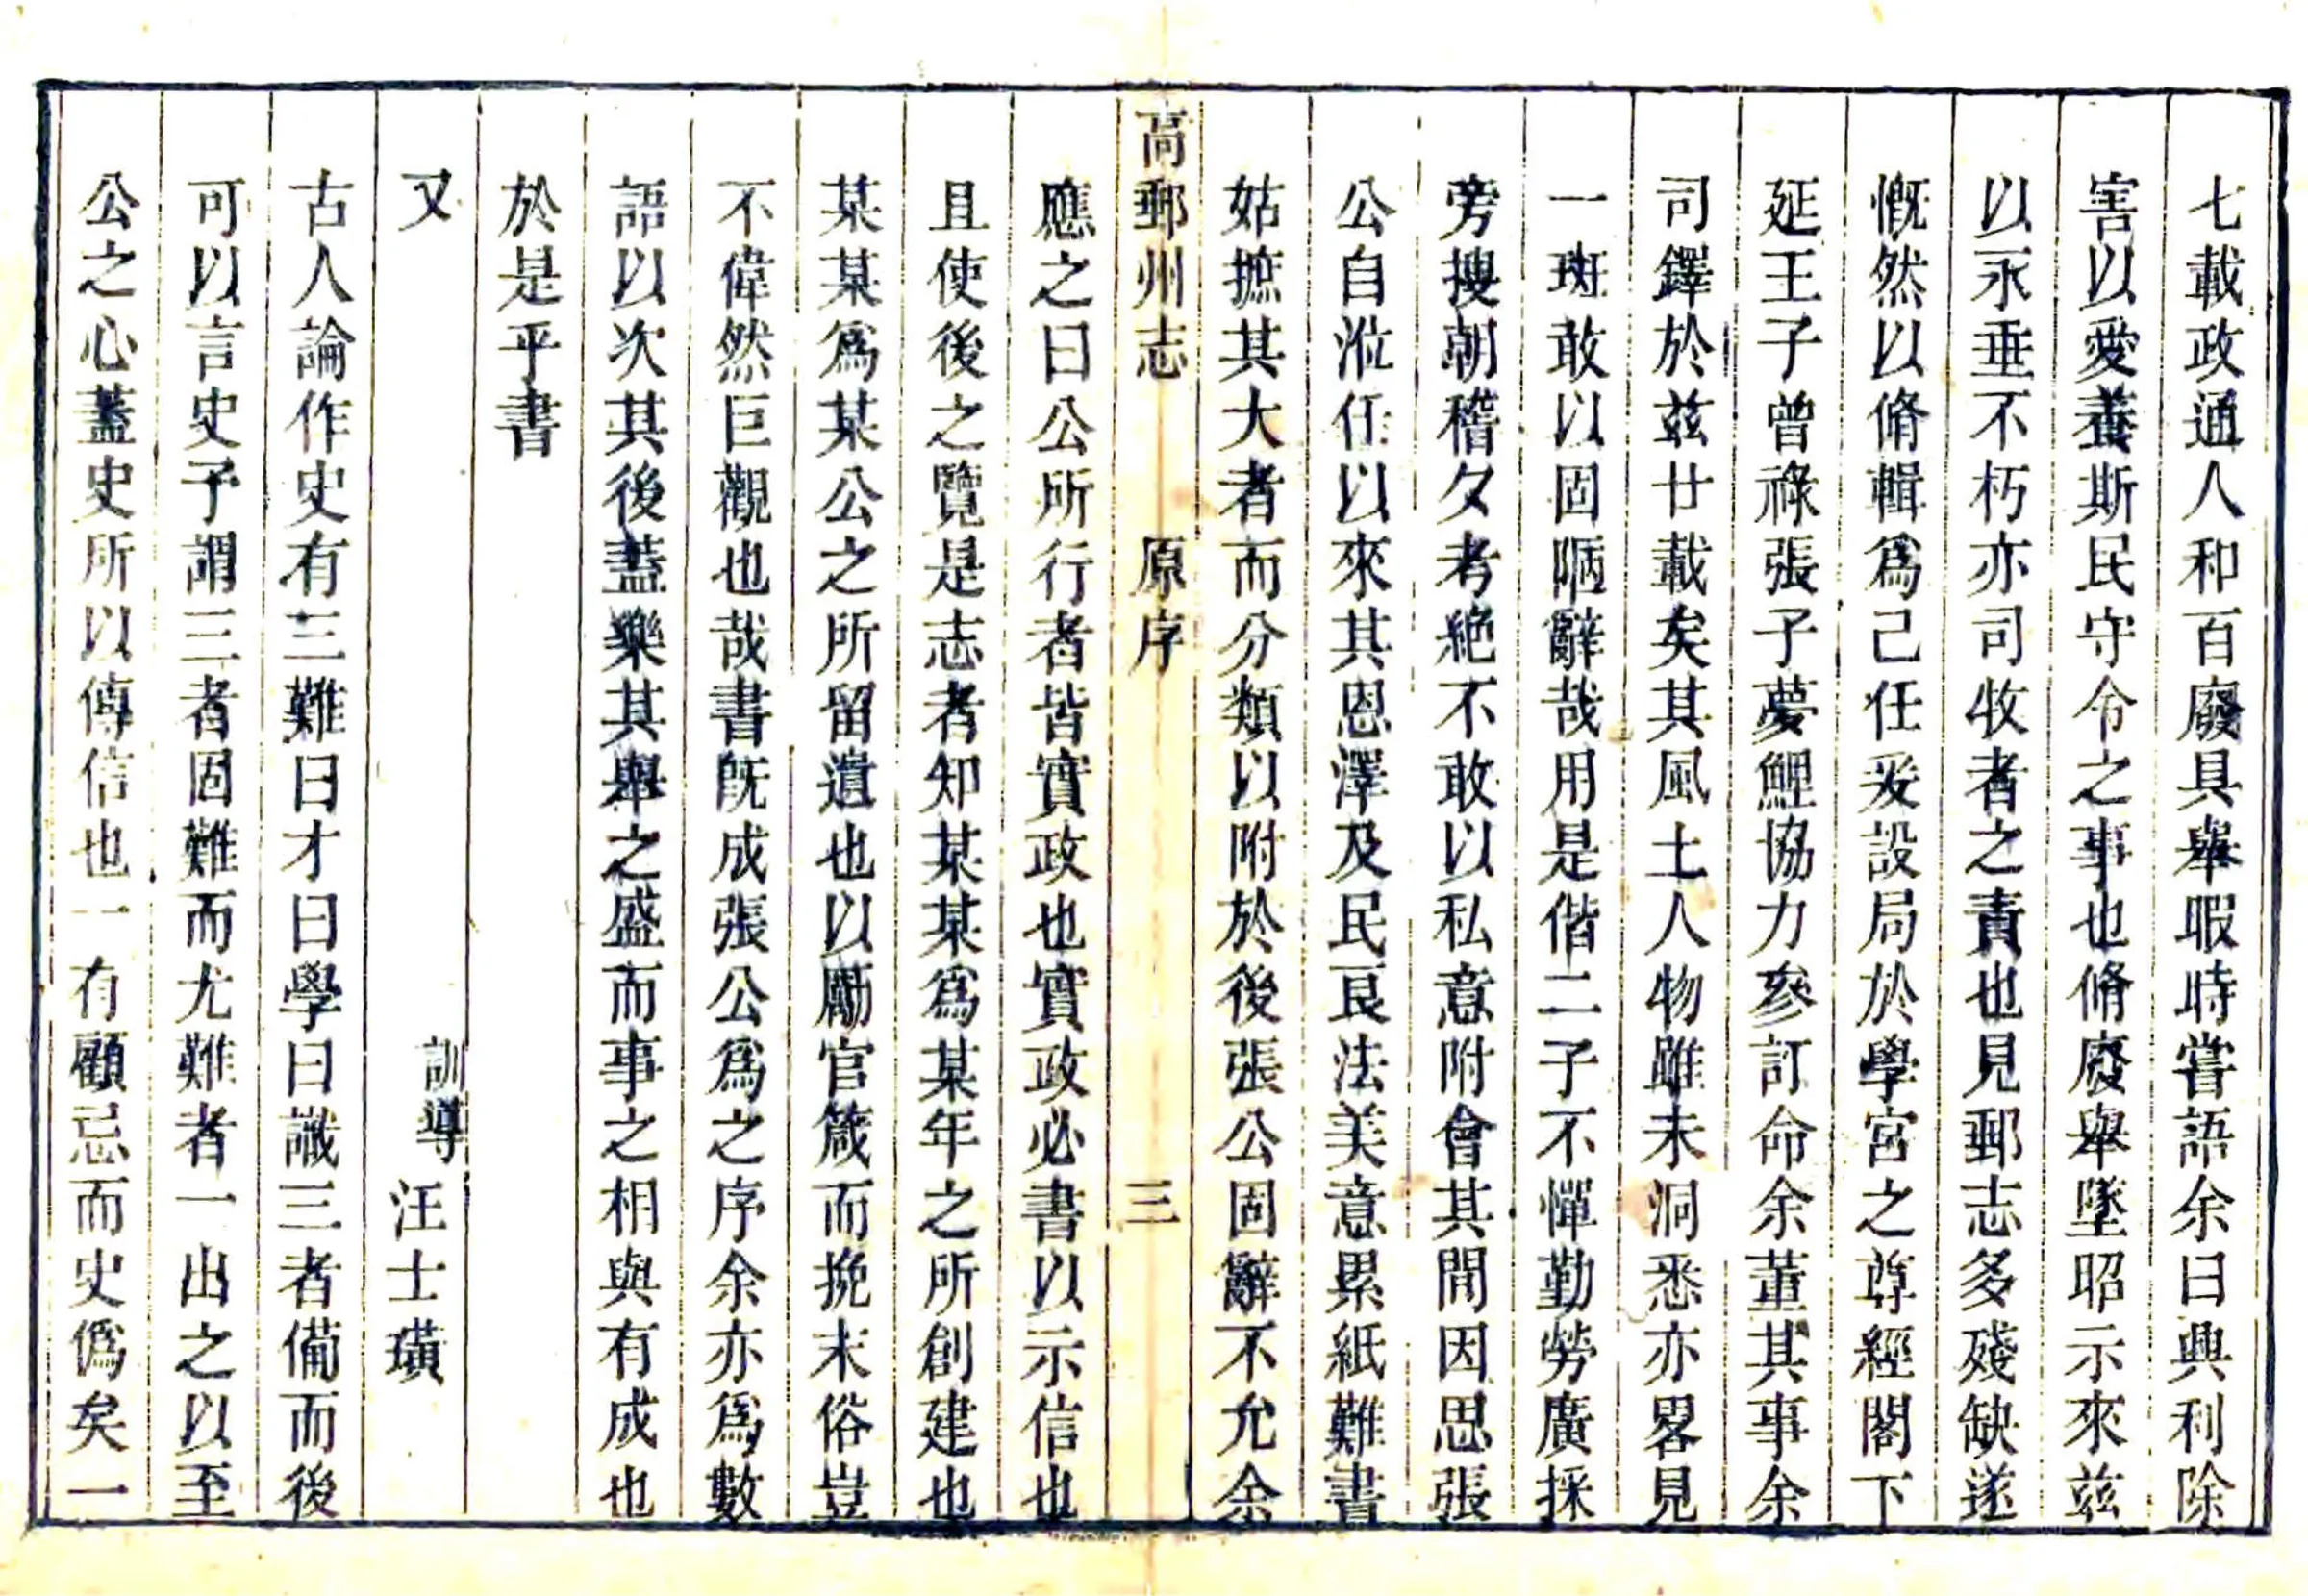 七載政通人和百廢具舉暇時嘗語余曰興利除
害以愛養斯民守令之事也脩廢舉墜昭示來茲
以永垂不朽亦司牧者之責也見郵志多殘缺遂
慨然以脩輯爲己任爰設局於學宮之尊經閣下
延王子曾祿張子夢鯉協力參訂命余董其事余
司鐸於茲廿載矣其風土人物雖未洞悉亦畧見
一斑敢以固陋辭哉用是偕二子不憚勤勞廣採
旁搜朝稽夕考絶不敢以私意附會其間因思張
公自涖任以來其恩澤及民良法美意累紙難書
姑摭其大者而分類以附於後張公固辭不允余
高郵州志 原序 三
應之曰公所行者皆實政也實政必書以示信也
且使後之覽是志者知某某爲某年之所創建也
某某爲某公之所留遺也以勵官箴而挽末俗豈
不偉然巨觀也哉書既成張公爲之序余亦爲數
語以次其後蓋樂其舉之盛而事之相與有成也
於是乎書
又 訓導汪士璜
古人論作史有三難曰才曰學曰識三者備而後
可以言史予謂三者固難而尤難者一出之以至
公之心蓋史所以傳信也一有顧忌而史僞矣一